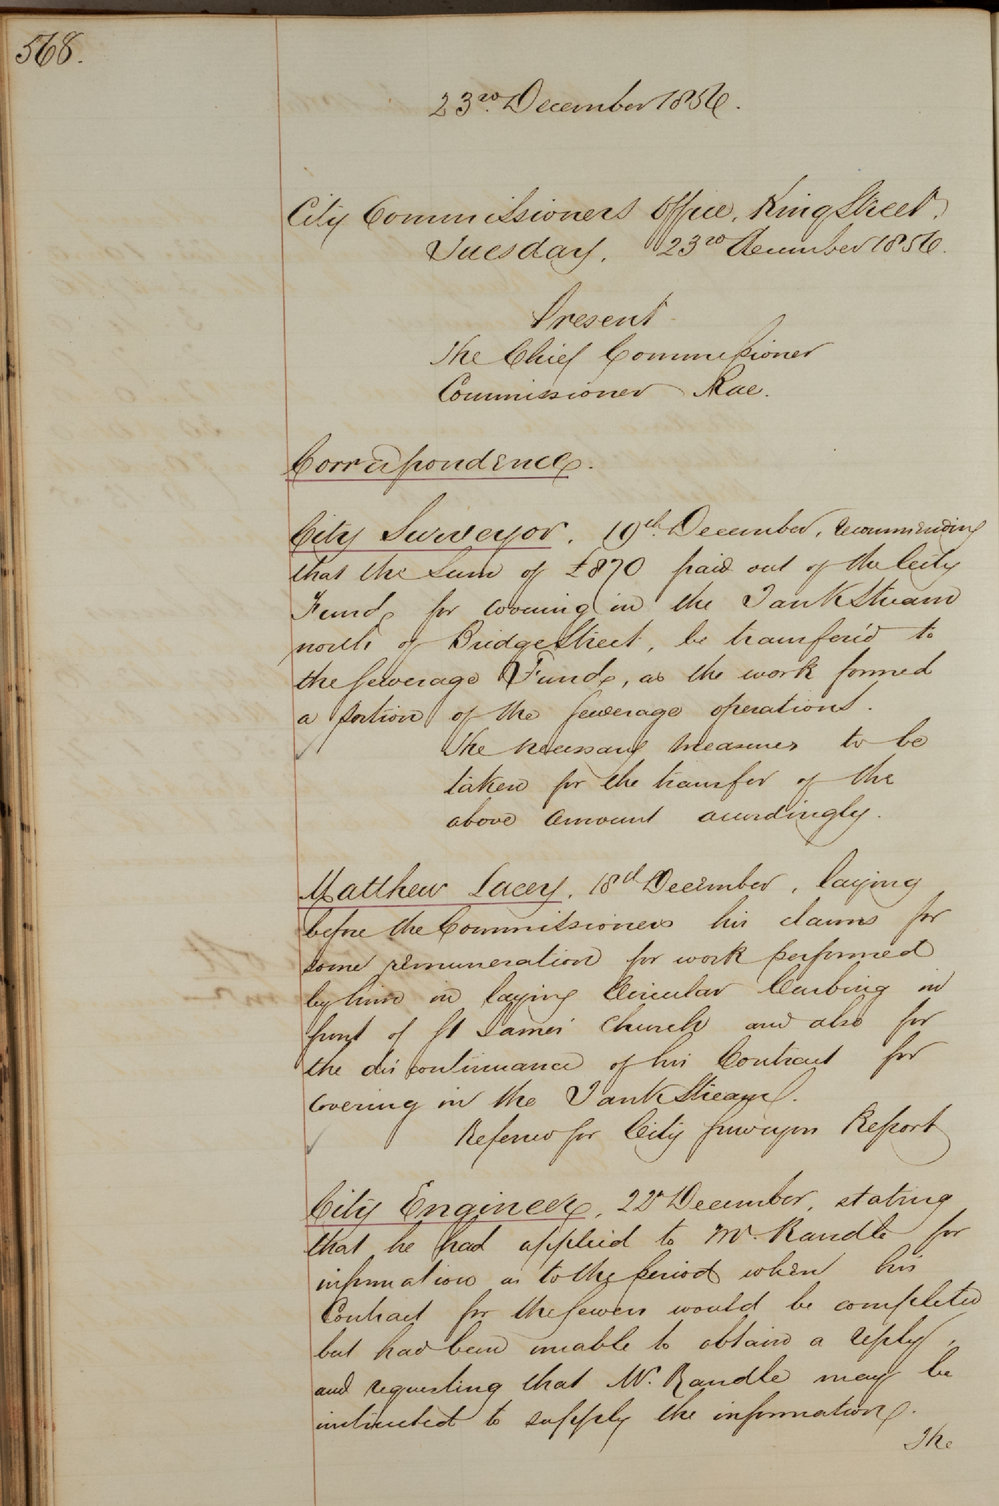 568.
23rd December 1856.
City Commissioners Office, King Street,
Tuesday, 23rd December 1856.
Present
The Chief Commissioner
Commissioner Rae.
Correspondence.
City Surveyor, 19th December, recommending
that the Sum of £870 paid out of the City
Fund, for covering in the Tank Stream
north of Bridge Street, be transfer'd to
the Sewerage Fund, as the work formed
a portion of the Sewerage operations.
The necessary measures to be
taken for the transfer of the
above amount accordingly.
Matthew Lacey, 18th December, laying
before the Commissioners his claims for
some remuneration for work performed
by him in laying Circular Curbing in
front of St James' Church and also for
the discontinuance of his Contract for
covering in the Tank Stream.
Referred for City Surveyors Report
City Engineer, 22d December, stating
that he had applied to Mr. Randle for
information as to the period when his
Contract for the Sewers would be completed
but had been unable to obtain a reply,
and requesting that Mr. Randle may be
instructed to supply the information.
The